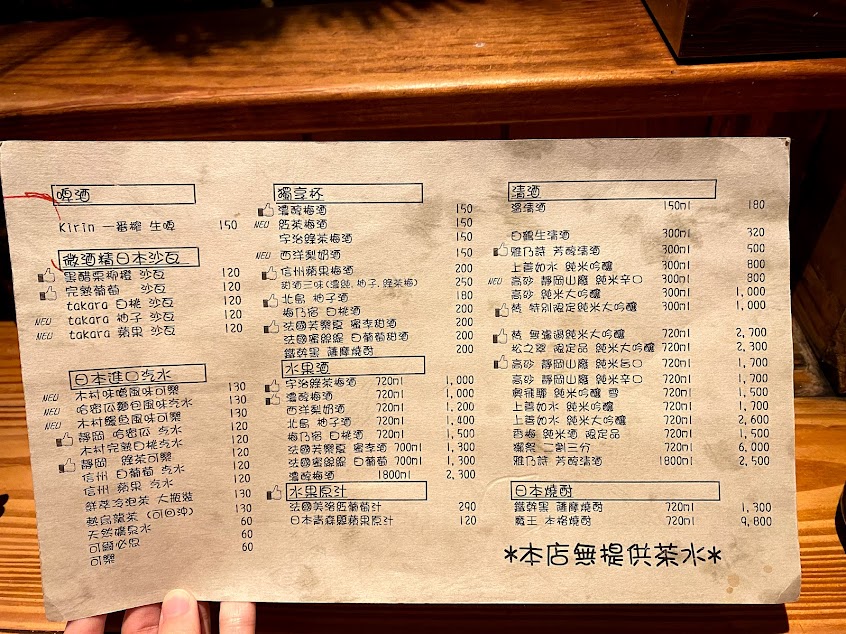 啤酒
Kirin 一番榨 生啤 150
微酒精日本沙瓦
黑醋栗柳橙 沙瓦 120
完熟葡萄 沙瓦 120
takara 白桃 沙瓦 120
NEU takara 柚子 沙瓦 120
NEU takara 蘋果 沙瓦 120
日本進口汽水
NEU 木村味噌風味可樂 130
NEU 哈密瓜麵包風味汽水 130
NEU 木村鰻魚風味可樂 130
靜岡 哈密瓜 汽水 120
木村完熟白桃汽水 120
靜岡 綠茶可樂 120
信州 白葡萄 汽水 120
信州 蘋果 汽水 120
鮮萃冷泡茶 大瓶裝 130
烏龍茶 (可回沖) 130
天然礦泉水 60
可爾必思 60
可樂 60
獨享杯
濃醇梅酒 150
NEU 紅茶梅酒 150
宇治綠茶梅酒 150
NEU 西洋梨奶酒 150
信州蘋果梅酒 200
甜酒三味(濃醇,柚子,綠茶梅) 250
北島 柚子酒 180
梅乃宿 白桃酒 200
法國芙樂夏 蜜李甜酒 200
法國蜜緹緹 白葡萄甜酒 200
鐵幹黑 薩摩燒酎 200
水果酒
宇治綠茶梅酒 720ml 1,000
濃醇梅酒 720ml 1,000
西洋梨奶酒 720ml 1,200
北島 柚子酒 720ml 1,400
梅乃宿 白桃酒 720ml 1,500
法國芙樂夏 蜜李酒 700ml 1,300
法國蜜緹緹 白葡萄 700ml 1,300
濃醇梅酒 1800ml 2,300
水果原汁
法國芙洛匹葡萄汁 290
日本青森縣蘋果原汁 120
清酒
溫清酒 150ml 180
白鶴生清酒 300ml 320
雅乃詩 芳醇清酒 300ml 500
上善如水 純米吟釀 300ml 800
NEU 高砂 靜岡山廢 純米辛口 300ml 800
高砂 純米大吟釀 300ml 1,000
特別限定純米大吟釀 300ml 1,000
無濾過純米大吟釀 720ml 2,700
松之翠 限定品 純米大吟釀 720ml 2,300
高砂 靜岡山廢 純米旨口 720ml 1,700
高砂 靜岡山廢 純米辛口 720ml 1,700
純米吟釀 雪 720ml 1,500
上善如水 純米吟釀 720ml 1,700
上善如水 純米大吟釀 720ml 2,600
香梅 純米酒 限定品 720ml 1,500
獺祭 二割三分 720ml 6,000
雅乃詩 芳醇清酒 1800ml 2,500
日本燒酎
鐵幹黑 薩摩燒酎 720ml 1,300
魔王 本格燒酎 720ml 9,800
*本店無提供茶水*